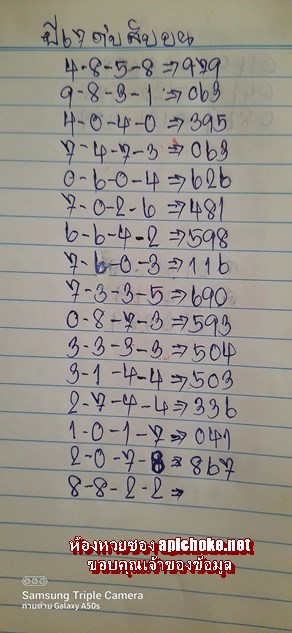 ปี67 ดับสิบบน
4-8-5-8⇒979
9-8-3-1⇒063
4-0-4-0⇒395
7-4-7-3⇒063
0-6-0-4⇒626
7-0-2-6⇒481
6-6-4-2⇒598
7-6-0-3⇒116
7-3-3-5⇒690
0-8-7-3⇒593
3-3-3-3⇒504
3-1-4-4⇒503
2-7-4-4⇒336
1-0-1-7⇒041
2-0-7-8⇒867
8-8-2-2⇒
ห้องหวยซอง apichoke.net
ขอบคุณเจ้าของข้อมูล
Samsung Triple Camera
ถ่ายด้วย Galaxy A50s